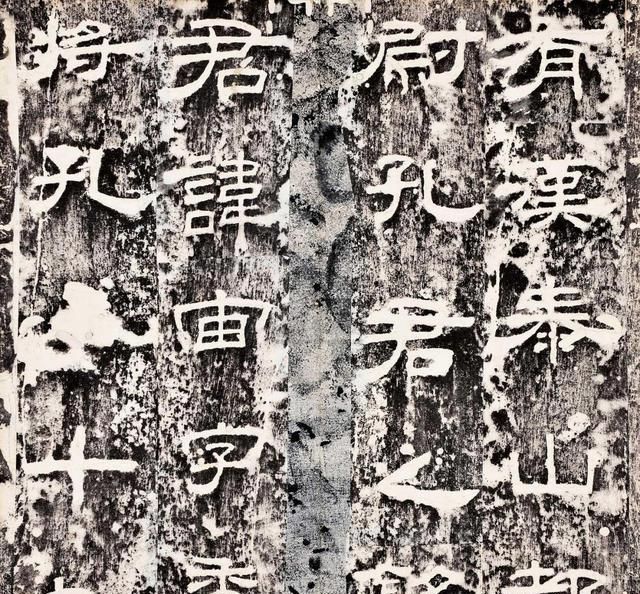 有漢泰山都
尉孔君之銘
君諱宙字季
將孔十